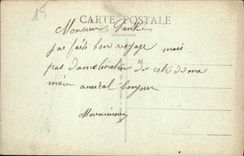 15
CARTE POSTALE
Monsieur
j'ai fait bon voyage mais
pas d'amélioration du coté de ma
mère amical bonjour